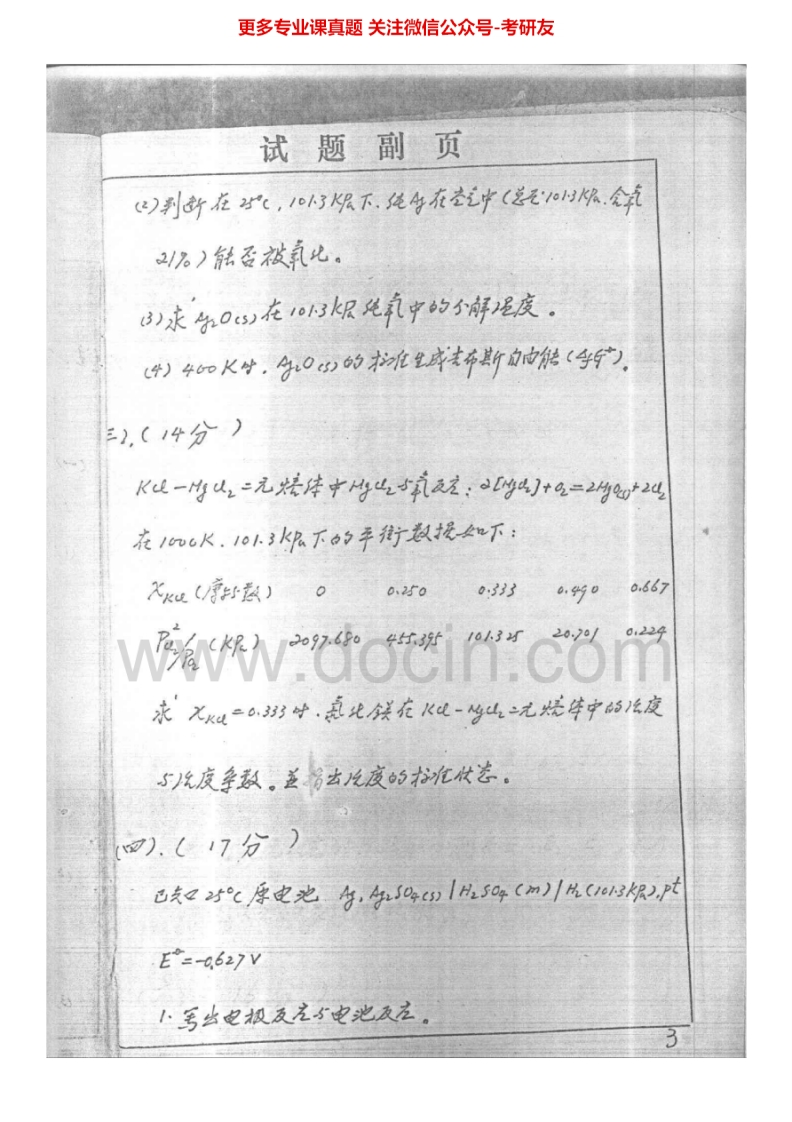 更多专业课真题 关注微信公众号-考研友
试 题 副 页
(2)判断在25°C,101.3KPa下、纯Ag在空气中(总压101.3KPa.含氧
21%)能否被氧化。
(3)求Ag2O(s)在101.3KPa纯氧中的分解温度。
(4)400K时,Ag2O(s)的标准生成吉布斯自由能(ΔfG⊖)。
三).(14分)
KCl-MgCl2二元熔体中MgCl2与氧反应:2[MgCl2]+O2=2MgO(s)+2Cl2
在1000K.101.3KPa下的平衡数据如下:
XKCl(摩尔数) 0 0.250 0.333 0.490 0.667
P²Cl2/PO2(KPa) 2097.680 455.395 101.325 20.701 0.224
www.docin.com
求XKCl=0.333时.氯化镁在KCl-MgCl2二元熔体中的活度
与活度系数。並指出活度的标准状态。
(四).(17分)
已知25°C原电池 Ag,Ag2SO4(s)|H2SO4(m)|H2(101.3KPa),Pt
E⊖=-0.627V
1.写出电极反应与电池反应。
3